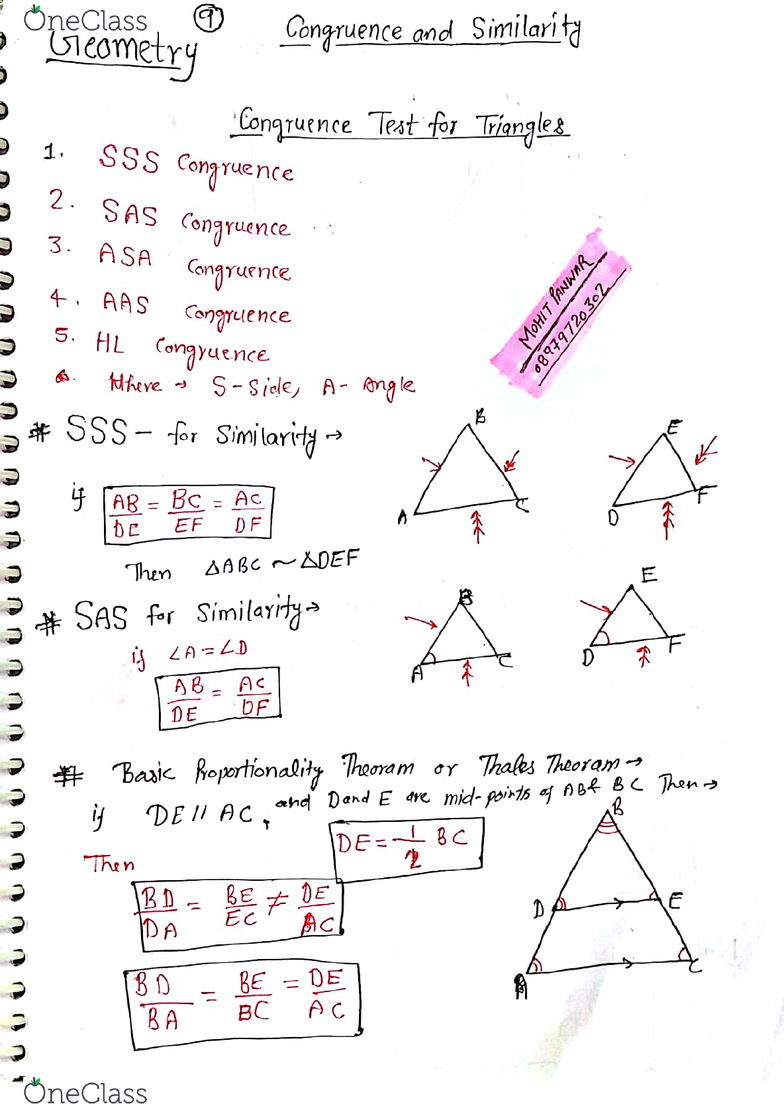 OneClass
9
Geometry
Congruence and Similarity
Congruence Test for Triangles
1. SSS Congruence
2. SAS Congruence
3. ASA Congruence
4. AAS Congruence
5. HL Congruence
6. Where → S-Side, A- Angle
MOHIT PANWAR
08979720302
# SSS - for Similarity →
if AB/DE = BC/EF = AC/DF
Then △ABC ~ △DEF
B
A
C
E
D
F
# SAS for Similarity →
if ∠A = ∠D
AB/DE = AC/DF
B
A
C
E
D
F
# Basic Proportionality Theoram or Thales Theoram →
if DE // AC, and D and E are mid-points of AB & BC Then →
DE = 1/2 BC
Then
BD/DA = BE/EC ≠ DE/AC
BD/BA = BE/BC = DE/AC
B
D
E
A
C
OneClass